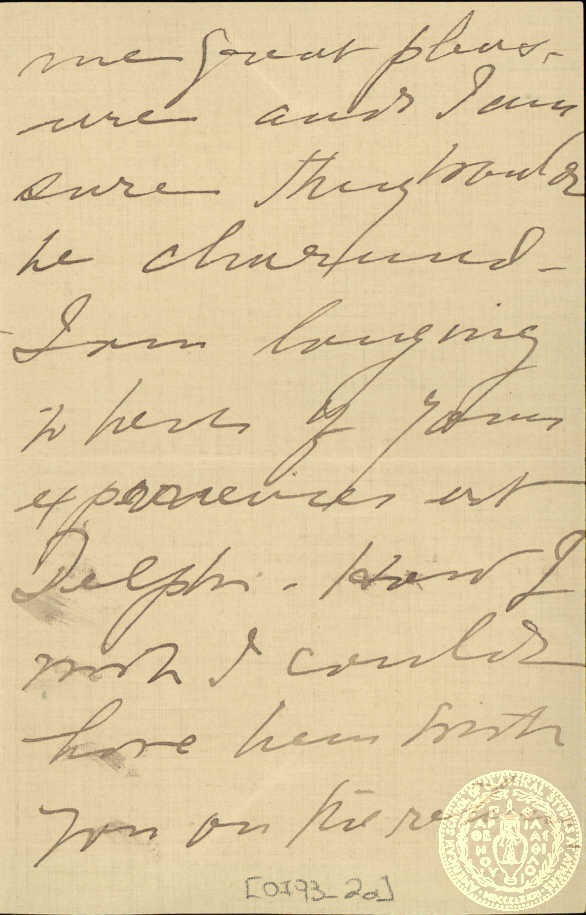 me great pleas-
ure and I am
sure they would
be charmed -
I am longing
to hear of your
experiences at
Delphi. How I
wish I could
have been with
you on the
[0193_2a]